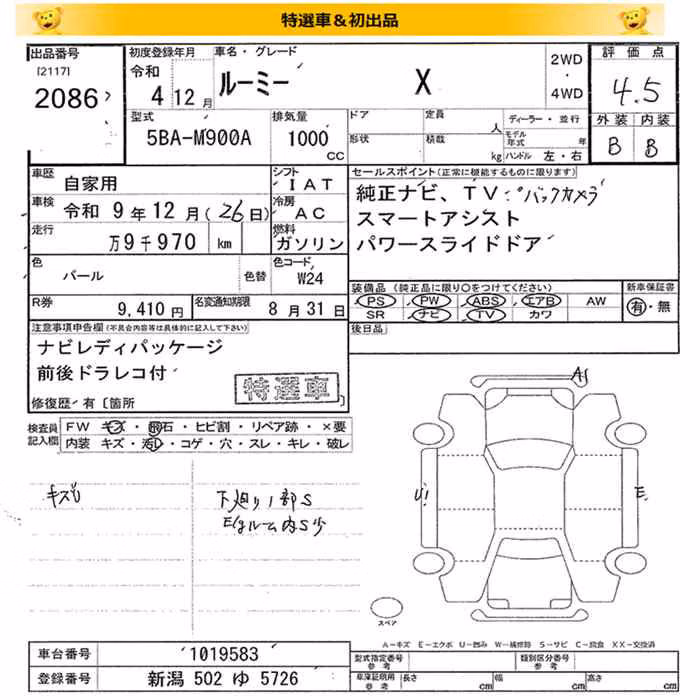 特選車＆初出品
出品番号 初度登録年月 車名・グレード 2WD・4WD 評価点
[2117] 令和
2086 4 12月 ルーミー X 4.5
型式 排気量 ドア 定員 人 ディーラー・並行 外装 内装
5BA-M900A 1000 CC 形状 積載 kg モデル年式 年 ハンドル 左・右 B B
車歴 自家用 シフト IAT セールスポイント(正常に機能するものに限ります)
車検 令和 9年12月(26日) 冷房 AC 純正ナビ、TV、バックカメラ
走行 万9千970 km 燃料 ガソリン スマートアシスト
パワースライドドア
色 パール 色替 色コード W24
装備品(純正品に限り○をつけてください) 新車保証書
R券 9,410円 名変通知期限 8月31日 PS PW ABS エアB AW 有・無
SR ナビ TV カワ
注意事項申告欄(不具合内容等は具体的に記入して下さい) 後日品
ナビレディパッケージ
前後ドラレコ付
特選車
修復歴・有〔箇所
検査員記入欄 FW キズ・飛石・ヒビ割・リペア跡・×要
内装 キズ・汚レ・コゲ・穴・スレ・キレ・破レ
A1
キズU 下廻り1部S
E/gルーム内S少
U1 E
スペア
A-キズ E-エクボ U-凹み W-補修跡 S-サビ C-腐食 XX-交換済
車台番号 1019583 型式指定番号 参考 類別区分番号 参考
登録番号 新潟 502 ゆ 5726 車庫証明用 参考 長さ cm 幅 cm 高さ cm